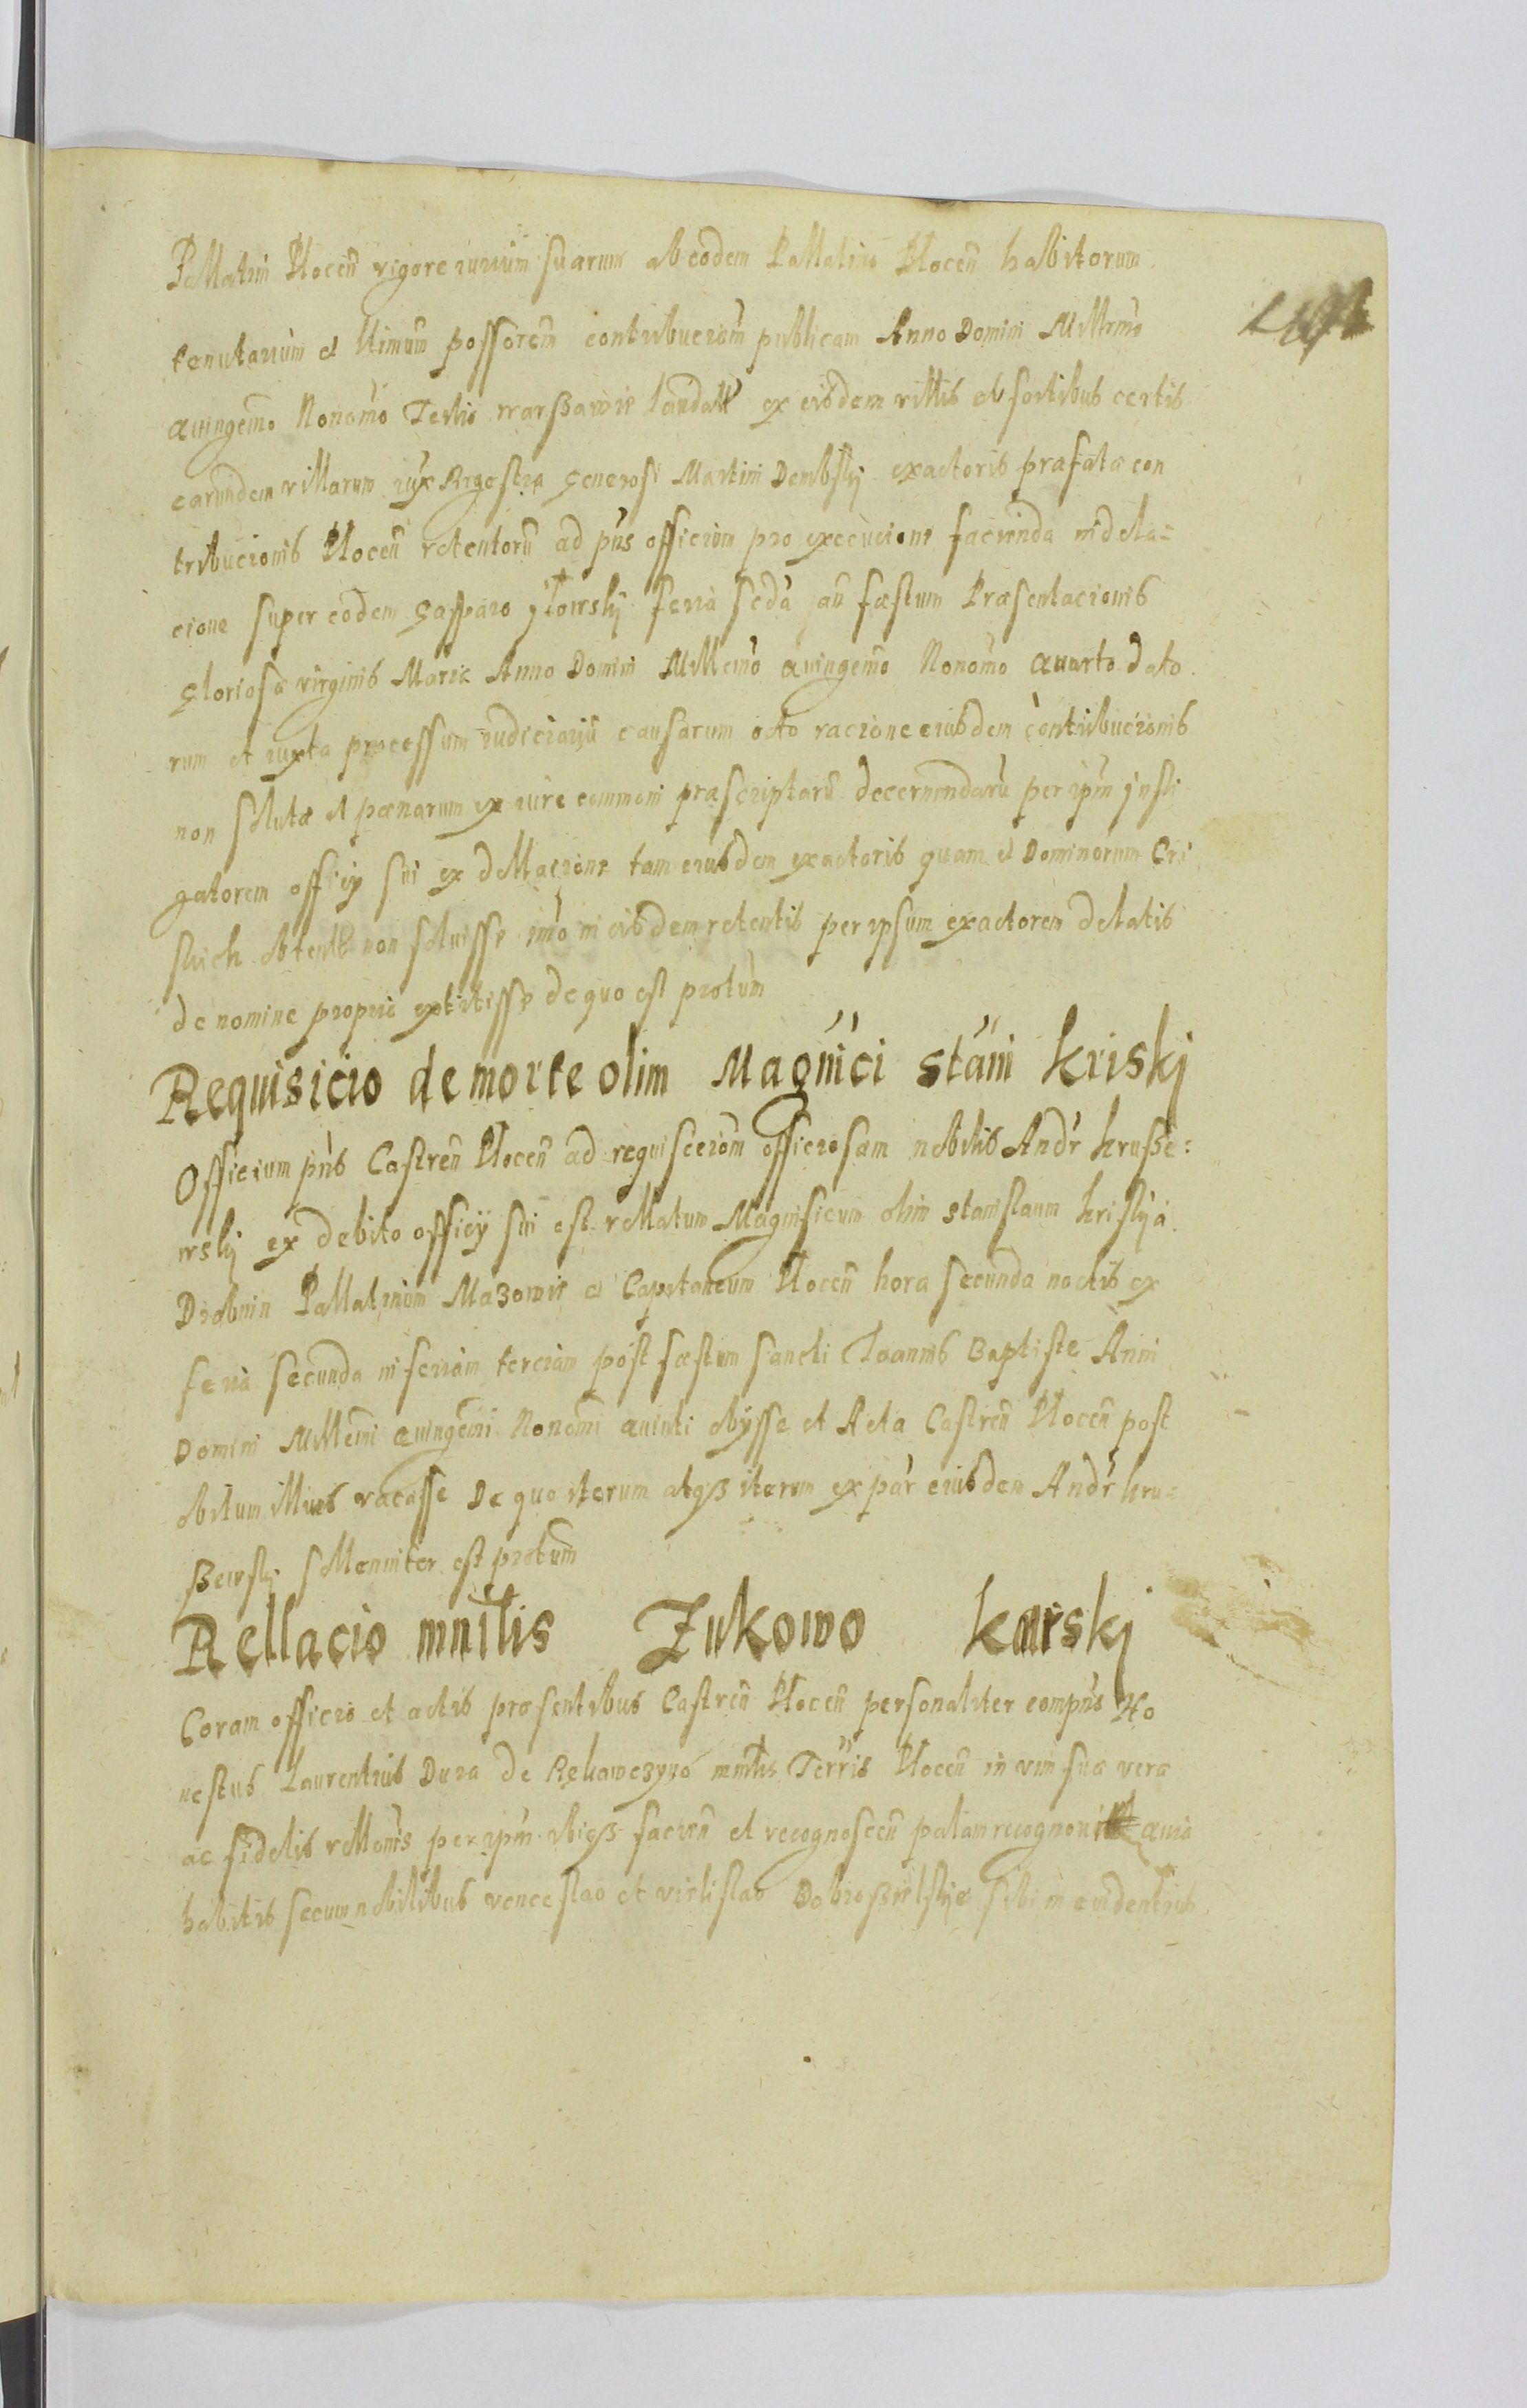 Pallatini Plocen̄ vigore iurium suarum ab eodem Pallatino Plocen̄ habitorum
tenutarium et possorem contribucionem publicam Anno Domini Millmo
Quingemo Nonomo Tertio Warßawie laudatam ex eisdem villis et sortibus certis
earundem villarum iux Regestra Generosi Martini Dembskij exactoris præfatæ con
tribucionis Plocen̄ retentorū ad pn̄s officium pro execucione facienda in dela=
cione super eodem Gasparo feria scda fæstum Præsentacionis
Gloriosæ virginis Mariæ Anno Domini Millemo Quingemo Nonomo Quarto dato
rum et iuxta processum iudiciariū causarum octo racione eiusdem contribucionis
non solutæ et pœnarum ex iure communi præscriptarū decernendarū per ipm Insti
gatorem officij sui ex dellacione tam eiusdem exactoris quam et Dominorum
non soluisse imo in eisdem retentis per ipsum exactorem delatis
de nomine proprio extitisse de quo est protum
Requisicio de morte olim Magnīci Stāni Kriskj
Officium pn̄s Castren̄ Plocen̄ ad requisicionem officiosam nobilis Andr Krusße=
wskj ex debito officij sui est rellatum Magnificum olim Stanislaum Kriskj a
Drobnin Pallatinum Mazowie et Capitaneum Plocen̄ hora secunda noctis ex
feria secunda in feriam terciam post fæstum sancti Joannis Baptiste Anni
Domini Millemi Quingemi Nonomi Quinti obijsse et Acta Castren̄ Plocen̄ post
obitum illius vacasse De quo iterum atqꝫ iterum ex par eiusdem Andr Kru=
ßewskj sollenniter est protum
Rellacio mnilis Zukowo Karskj
Coram officio et actis præsentibus Castren̄ Plocen̄ personaliter compn̄s Ho
nestus Laurentius Dura de Rękawczyno mnilis Terris Plocen̄ in vim suæ veræ
ac fidelis rellonis per ipm ibiqꝫ facien̄ et recognoscen̄ palam recognovit Quia
habitis secum nobilibus venceslao et vielislao sibi in evidentius